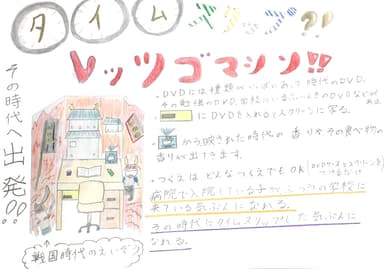 タイムスクール?!
レッツゴマシン!!
その時代へ出発!!
・DVDには種類がいっぱいあって時代のDVD、
その勉強のDVD、
にDVDを入れるとスクリーンに写る。
から映された時代の香りやその食べ物の
香りが出てきます。
・つくえはどんなつくえでもOK(DVDケースとスクリーンをつけるだけ)
病院で入院している子が、ふつうの学校に
来ている気ぶんになれる。
その時代にタイムスリップした気ぶんに
なれる。
戦国時代のえいぞう